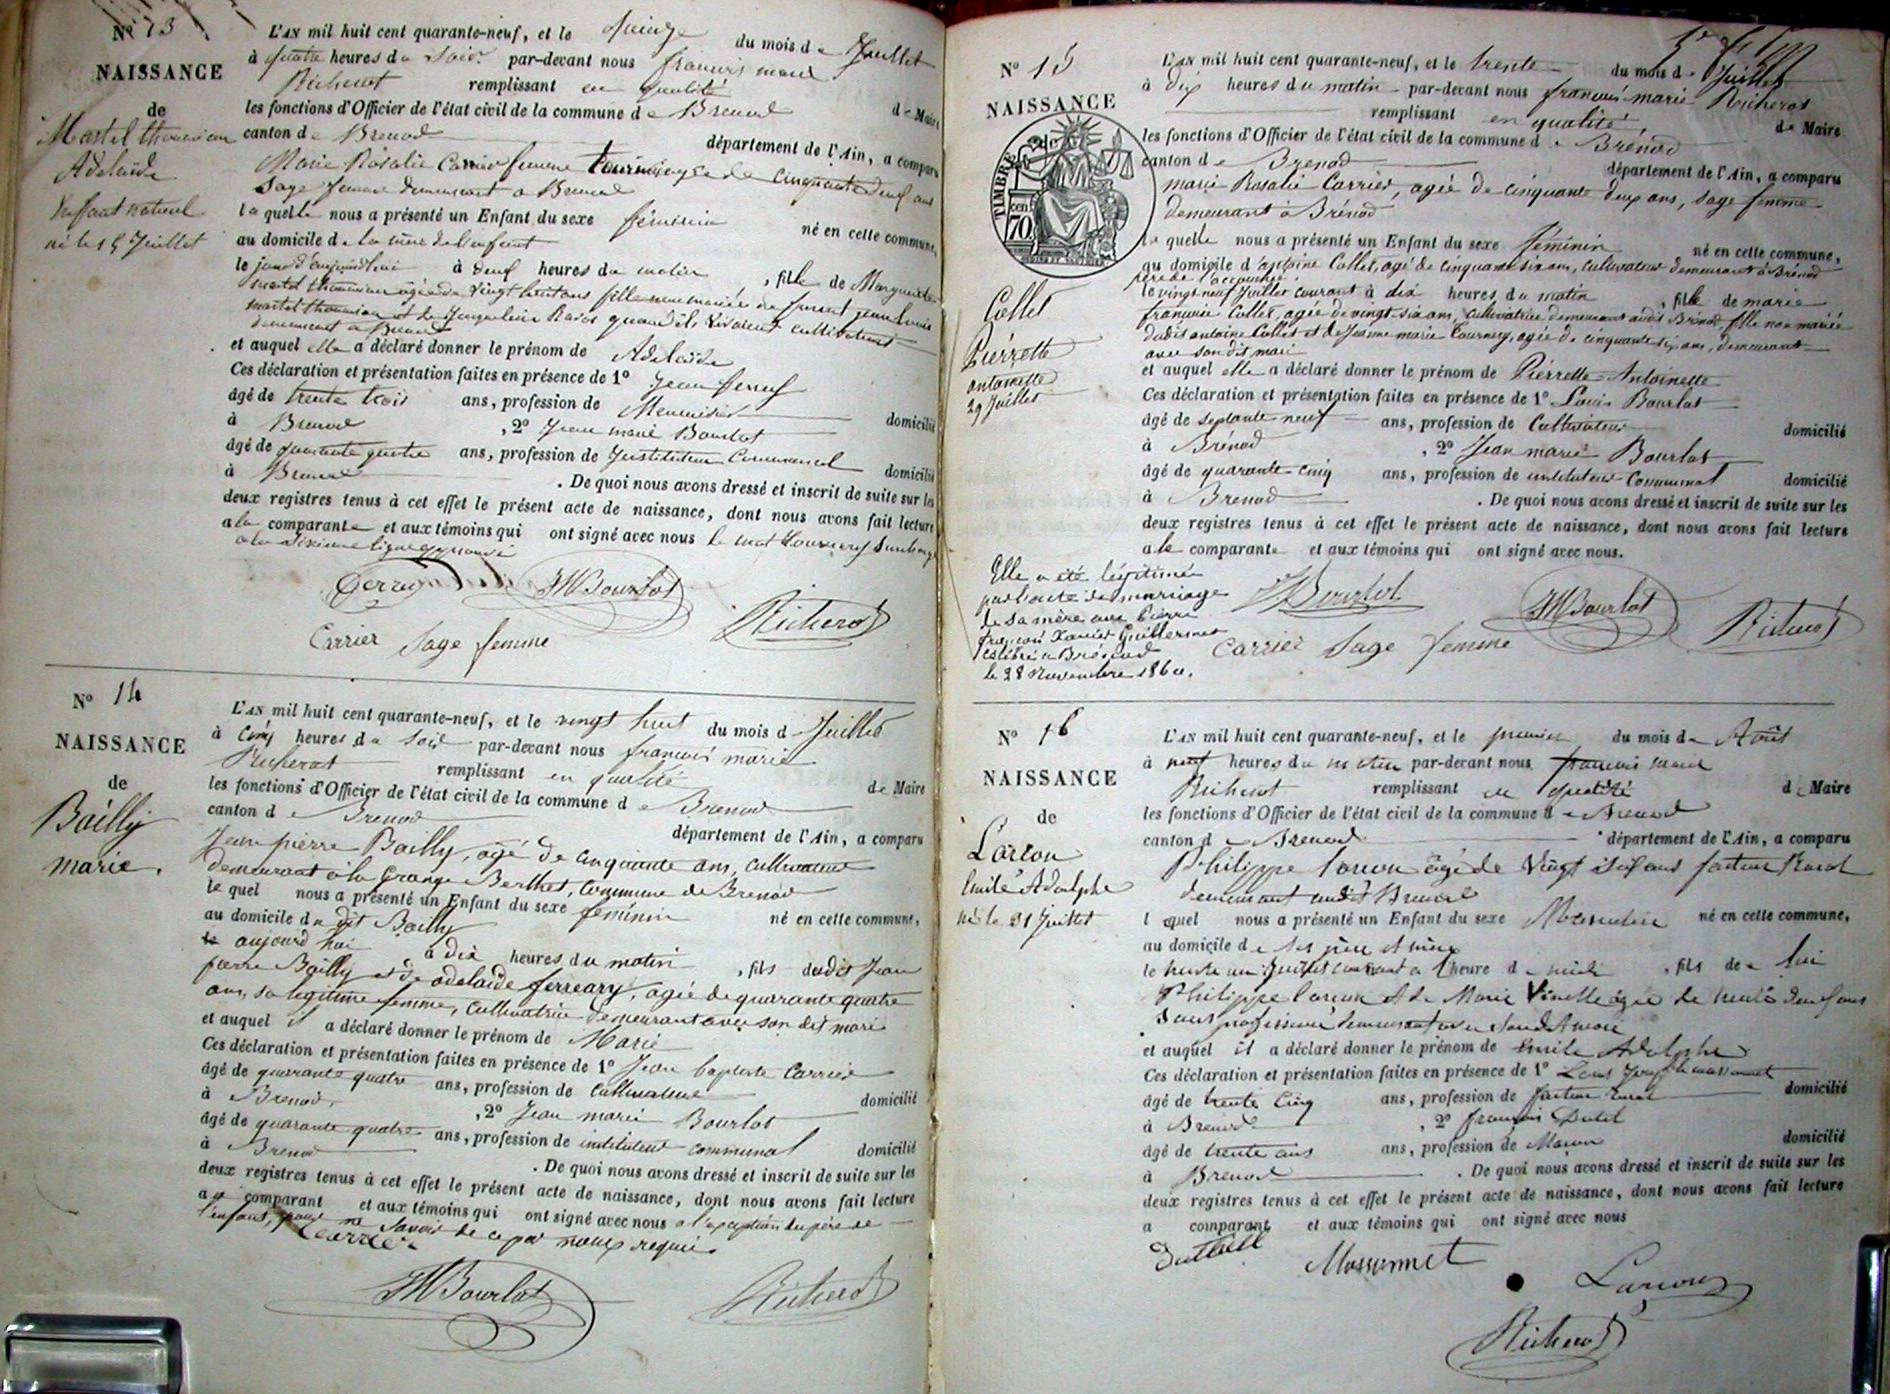 Nº 13
NAISSANCE
de
Martel thouverien
Adelaïde
Enfant naturel
né le 15 Juillet
L'AN mil huit cent quarante-neuf, et le quinze du mois de Juillet
à quatre heures du soir par-devant nous francois marie
Richerot remplissant en qualité de Maire
les fonctions d'Officier de l'état civil de la commune de Brenod
canton de Brenod département de l'Ain, a comparu
Marie Rosalie Carrier femme agée de cinquante deux ans
Sage femme demeurant à Brenod
laquelle nous a présenté un Enfant du sexe féminin né en cette commune,
au domicile de la mère de l'enfant
le jour d'aujourd'hui à deux heures du matin, fille de Marguerite
agée de vingt huit ans fille non mariée de jean Louis
quand ils vivaient cultivateurs
demeurant à Brenod
et auquel elle a déclaré donner le prénom de Adelaïde
Ces déclaration et présentation faites en présence de 1º Jean
âgé de trente trois ans, profession de Menuisier domicilié
à Brenod, 2º Jean marie Bourlot
âgé de quarante quatre ans, profession de Instituteur Communal domicilié
à Brenod. De quoi nous avons dressé et inscrit de suite sur les
deux registres tenus à cet effet le présent acte de naissance, dont nous avons fait lecture
a la comparante et aux témoins qui ont signé avec nous le mot
a la Sixieme ligne approuvé
JMBourlot
Richerot
Carrier Sage femme
Nº 14
NAISSANCE
de
Bailly
marie.
L'AN mil huit cent quarante-neuf, et le vingt huit du mois d Juillet
à cinq heures du soir par-devant nous francois marie
Richerot remplissant en qualité de Maire
les fonctions d'Officier de l'état civil de la commune de Brenod
canton de Brenod département de l'Ain, a comparu
Jean pierre Bailly, agé de cinquante ans, cultivateur
demeurant à la Grange Berthet, Commune de Brenod
lequel nous a présenté un Enfant du sexe feminin né en cette commune,
au domicile du dit Bailly
aujourd'hui à dix heures du matin, fils dudit Jean
pierre Bailly et de adelaïde ferreary, agée de quarante quatre
ans, sa legitime femme, cultivatrice demeurant avec son dit mari
et auquel il a déclaré donner le prénom de Marie
Ces déclaration et présentation faites en présence de 1º Jean baptiste Carrier
âgé de quarante quatre ans, profession de cultivateur domicilié
à Brenod, 2º Jean marie Bourlot
âgé de quarante quatre ans, profession de instituteur communal domicilié
à Brenod. De quoi nous avons dressé et inscrit de suite sur les
deux registres tenus à cet effet le présent acte de naissance, dont nous avons fait lecture
au comparant et aux témoins qui ont signé avec nous a l'exception du père de
l'enfant, pour ne savoir de ce par nous requis.
Carrier
JMBourlot
Richerot
Nº 15
NAISSANCE
TIMBRE
cen
70
Collet
Pierrette
antoinette
29 Juillet
L'AN mil huit cent quarante-neuf, et le trente du mois de Juillet
à dix heures du matin par-devant nous francois marie Richerot
remplissant en qualité de Maire
les fonctions d'Officier de l'état civil de la commune de Brénod
canton de Brenod département de l'Ain, a comparu
marie Rosalie Carrier, agée de cinquante deux ans, sage femme
demeurant à Brénod
laquelle nous a présenté un Enfant du sexe féminin né en cette commune,
au domicile d'antoine Collet, agé de cinquante six ans, cultivateur demeurant à Brénod
père de l'accouchée
le vingt neuf Juillet courant à dix heures du matin, fille de marie
françoise Collet, agée de vingt six ans, cultivatrice demeurant audit Brénod fille non mariée
dudit antoine Collet et de Jeanne marie Tournery, agée de cinquante six ans, demeurant
avec son dit mari
et auquel elle a déclaré donner le prénom de Pierrette Antoinette
Ces déclaration et présentation faites en présence de 1º Louis Bourlot
âgé de septante neuf ans, profession de Cultivateur domicilié
à Brénod, 2º Jean marie Bourlot
âgé de quarante cinq ans, profession de instituteur Communal domicilié
à Brenod. De quoi nous avons dressé et inscrit de suite sur les
deux registres tenus à cet effet le présent acte de naissance, dont nous avons fait lecture
a la comparante et aux témoins qui ont signé avec nous.
Elle a été légitimée
par l'acte de mariage
de sa mère avec Pierre
françois Xavier Guillermet
célébré à Brénod
le 28 Novembre 1860.
Bourlot
JMBourlot
Richerot
Carrier Sage femme
Nº 16
NAISSANCE
de
Larcon
Emile Adolphe
né le 31 Juillet
L'AN mil huit cent quarante-neuf, et le premier du mois de Août
à neuf heures du matin par-devant nous francois marie
Richerot remplissant en qualité de Maire
les fonctions d'Officier de l'état civil de la commune de Brenod
canton de Brenod département de l'Ain, a comparu
Philippe Larcon âgé de vingt six ans facteur Rural
demeurant audit Brenod
lequel nous a présenté un Enfant du sexe Masculin né en cette commune,
au domicile de ses père et mère
le trente un Juillet courant a 1 heure de midi, fils de lui
Philippe Larcon et de Marie Vinette âgée de trente deux ans
Sans profession demeurant avec son dit mari
et auquel il a déclaré donner le prénom de Emile Adolphe
Ces déclaration et présentation faites en présence de 1º Louis Joseph Massonnet
âgé de trente cinq ans, profession de facteur rural domicilié
à Brenod, 2º françois Dutel
âgé de trente ans ans, profession de Maçon domicilié
à Brenod. De quoi nous avons dressé et inscrit de suite sur les
deux registres tenus à cet effet le présent acte de naissance, dont nous avons fait lecture
a comparant et aux témoins qui ont signé avec nous
Massonnet
Larcon
Richerot